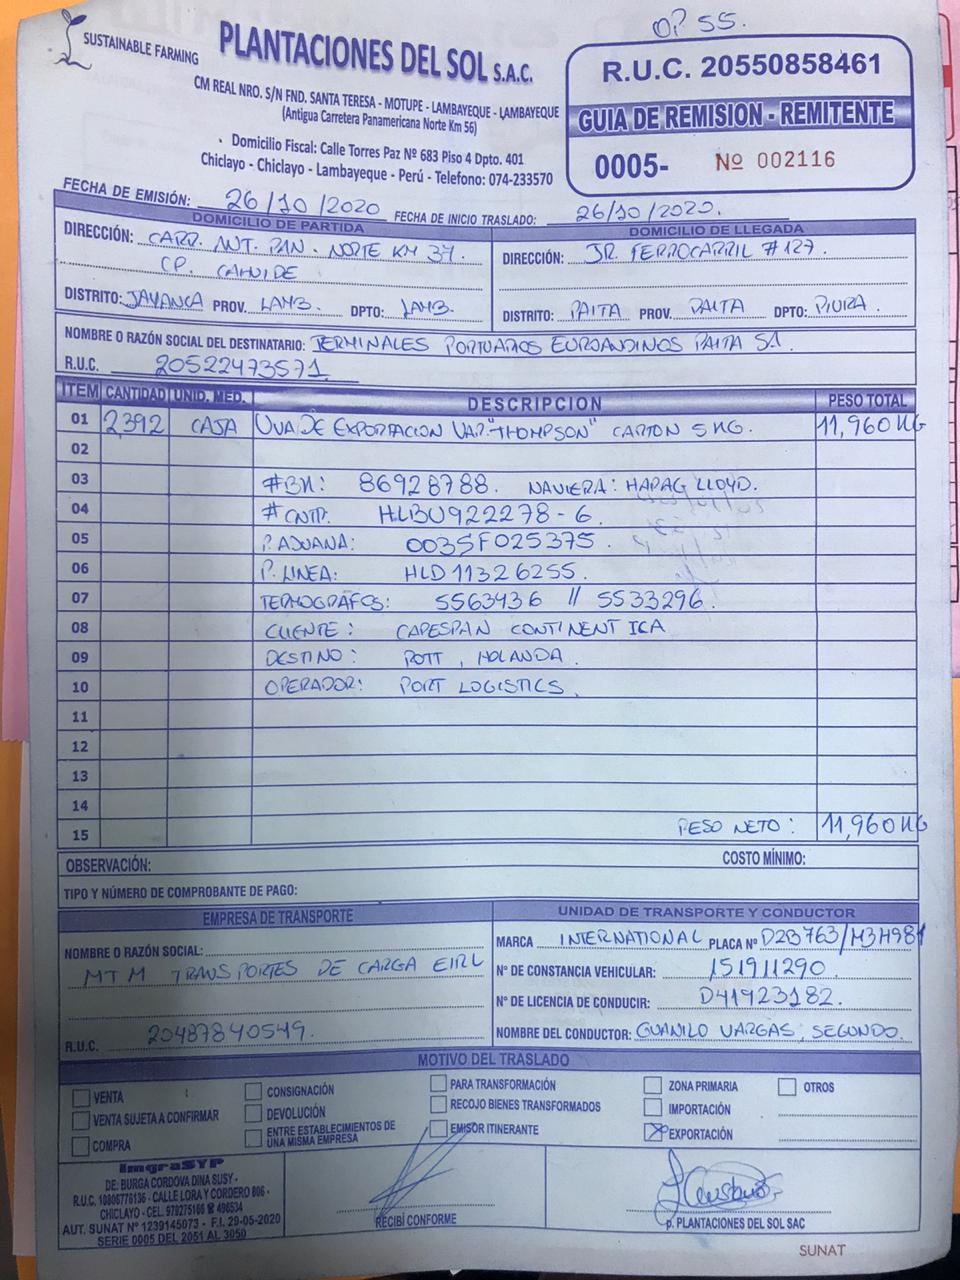 OP 55.
SUSTAINABLE FARMING
PLANTACIONES DEL SOL S.A.C.
CM REAL NRO. S/N FND. SANTA TERESA - MOTUPE - LAMBAYEQUE - LAMBAYEQUE
(Antigua Carretera Panamericana Norte Km 56)
Domicilio Fiscal: Calle Torres Paz Nº 683 Piso 4 Dpto. 401
Chiclayo - Chiclayo - Lambayeque - Perú - Telefono: 074-233570
R.U.C. 20550858461
GUIA DE REMISION - REMITENTE
0005- Nº 002116
FECHA DE EMISIÓN: 26/10/2020 FECHA DE INICIO TRASLADO: 26/10/2020.
DOMICILIO DE PARTIDA
DIRECCIÓN: CARR. ANT. PAN. NORTE KM 37.
CP. CAHUIDE
DISTRITO: JAYANCA PROV. LAMB. DPTO: LAMB.
DOMICILIO DE LLEGADA
DIRECCIÓN: JR. FERROCARRIL #127.
DISTRITO: PAITA PROV. PAITA DPTO: PIURA
NOMBRE O RAZÓN SOCIAL DEL DESTINATARIO: TERMINALES PORTUARIOS EUROANDINOS PAITA SA.
R.U.C. 20522473571
ITEM CANTIDAD UNID. MED. DESCRIPCION PESO TOTAL
01 2,392 CAJA UVA DE EXPORTACION VAR. "THOMPSON" CARTON 5 KG. 11,960 KG
02
03 #BK: 86928788. NAVIERA: HAPAG LLOYD.
04 #CNTR. HLBU922278-6.
05 P. ADUANA: 0035F025375.
06 P. LINEA: HLD 11326255.
07 TERMOGRÁFOS: 5563436 // 5533296.
08 CLIENTE: CAPESPAN CONTINENT ICA
09 DESTINO: ROTT, HOLANDA.
10 OPERADOR: PORT LOGISTICS.
11
12
13
14
15 PESO NETO: 11,960 KG
OBSERVACIÓN: COSTO MÍNIMO:
TIPO Y NÚMERO DE COMPROBANTE DE PAGO:
EMPRESA DE TRANSPORTE
NOMBRE O RAZÓN SOCIAL:
MTM TRANSPORTES DE CARGA EIRL
R.U.C. 20487840549.
UNIDAD DE TRANSPORTE Y CONDUCTOR
MARCA INTERNATIONAL PLACA Nº D2B763/M3H981
Nº DE CONSTANCIA VEHICULAR: 151911290
Nº DE LICENCIA DE CONDUCIR: D41923182.
NOMBRE DEL CONDUCTOR: GUANILO VARGAS, SEGUNDO.
MOTIVO DEL TRASLADO
VENTA
VENTA SUJETA A CONFIRMAR
COMPRA
CONSIGNACIÓN
DEVOLUCIÓN
ENTRE ESTABLECIMIENTOS DE
UNA MISMA EMPRESA
PARA TRANSFORMACIÓN
RECOJO BIENES TRANSFORMADOS
EMISOR ITINERANTE
ZONA PRIMARIA
IMPORTACIÓN
EXPORTACIÓN
OTROS
ImgraSYP
DE: BURGA CORDOVA DINA SUSY -
R.U.C. 10806776136 - CALLE LORA Y CORDERO 806 -
CHICLAYO - CEL. 979275166 ☎ 496534
AUT. SUNAT Nº 1239145073 - F.I. 29-05-2020
SERIE 0005 DEL 2051 AL 3050
RECIBÍ CONFORME
p. PLANTACIONES DEL SOL SAC
SUNAT